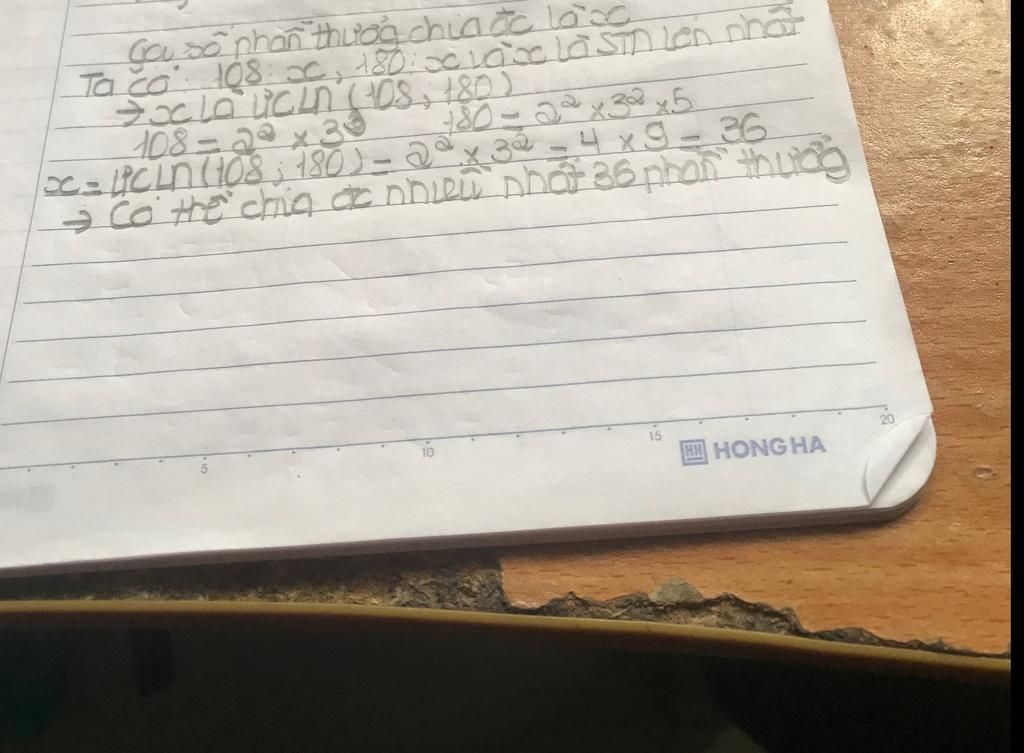 Gọi số phần thưởng chia đc là x
Ta có: 108 : x, 180 : x và x là STN lớn nhất
→ x là ƯCLN (108, 180)
108 = 2² × 3³ 180 = 2² × 3² × 5
x = ƯCLN (108; 180) = 2² × 3² = 4 × 9 = 36
→ Có thể chia đc nhiều nhất 36 phần thưởng
5 10 15 20
HH HONG HA